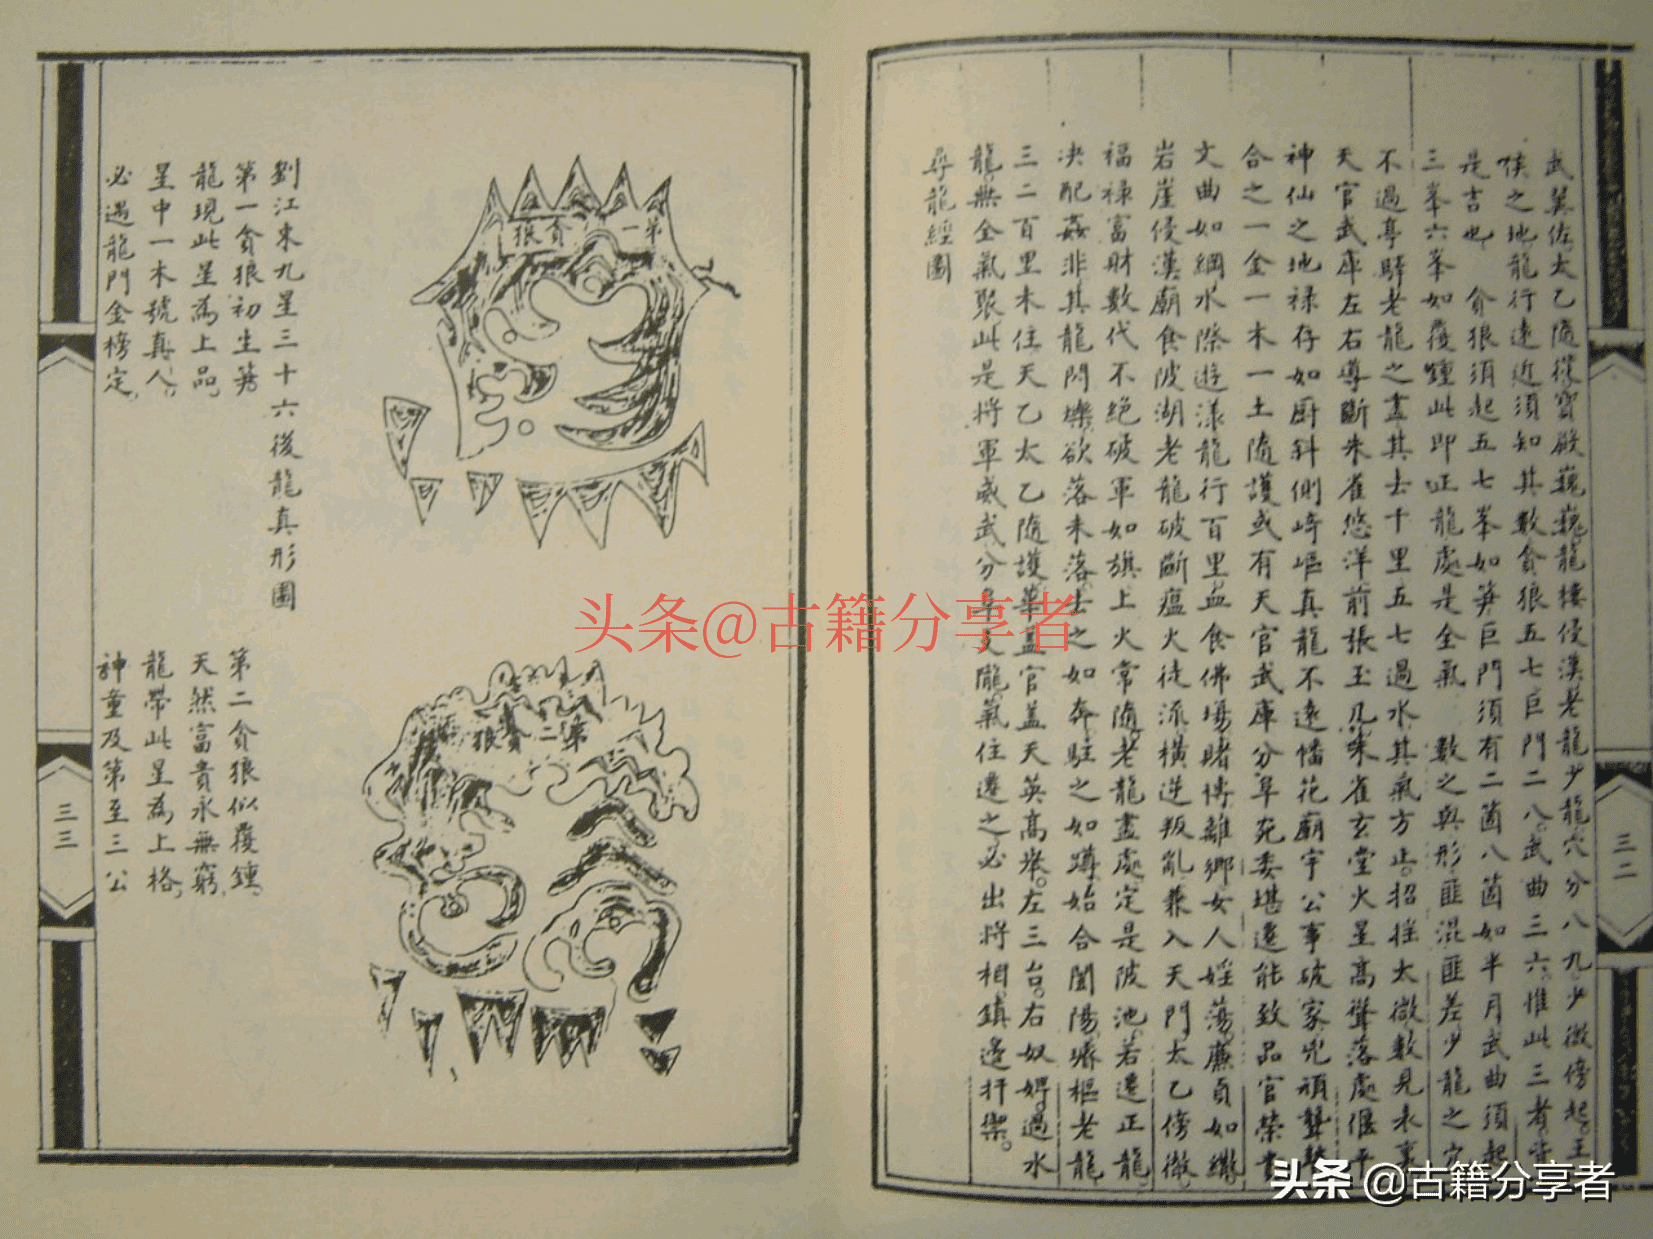 武冀佐太乙隨從寶殿巍巍龍樓侵漢老龍少龍穴分八九少微傍起王
侯之地龍行遠近須知其數貪狼五七巨門二八武曲三六惟此三者
是吉也 貪狼須起五七峯如笋巨門須有二箇八箇如半月武曲須起
三峯六峯如覆鍾此即正龍處是全氣 數之與形匪混匪差少龍之穴
不過亭驛老龍之盡其去千里五七過水其氣方止招搖太微數見永
天官武庫左右導斷朱雀悠洋前張玉几朱雀玄堂火星高聳落處偃平
神仙之地祿存如廚斜側崎嶇真龍不遠幡花廟宇公事破家兇頑聾
合之一金一木一土隨護或有天官武庫分阜死委堪遷能致品官榮貴
文曲如綱水際遊漾龍行百里血食佛場賭博離鄉女人婬蕩廉貞如
岩崖侵漢廟食陂湖老龍破斷瘟火徒流橫逆叛亂兼入天門太乙傍微
福祿富財數代不絕破軍如旗上火常隨老龍盡處定是陂池若遷正龍
決配姦非其龍閃爍欲落未落去之如奔駐之如蹲始合閶陽 樞老龍
三二百里未住天乙太乙隨護華蓋官蓋天英高举左三台右奴婢過水
龍無全氣聚此是將軍威武分 支隴氣住遷之必出將相鎮邊扞禦
尋龍經圖
三二
劉江東九星三十六後龍真形圖
第一貪狼初生笋
龍現此星為上品
星中一木號真人
必遇龍門金榜定
第一貪狼
第二貪狼似覆鍾
天然富貴永無窮
龍帶此星為上格
神童及第至三公
第二貪狼
三三
头条@古籍分享者
头条 @古籍分享者